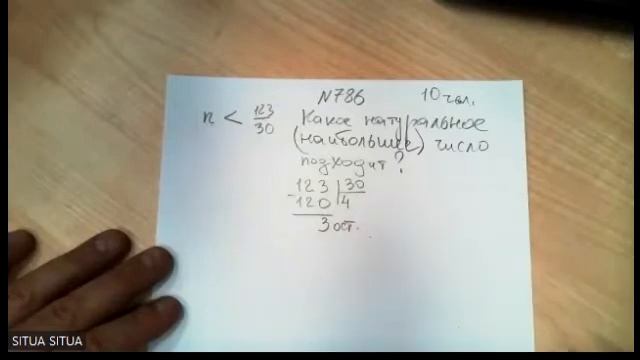 N786 10 чел.
n < 123/30 Какое натуральное
(наибольшее) число
подходит?
123 | 30
- 120 | 4
3 ост.
SITUA SITUA